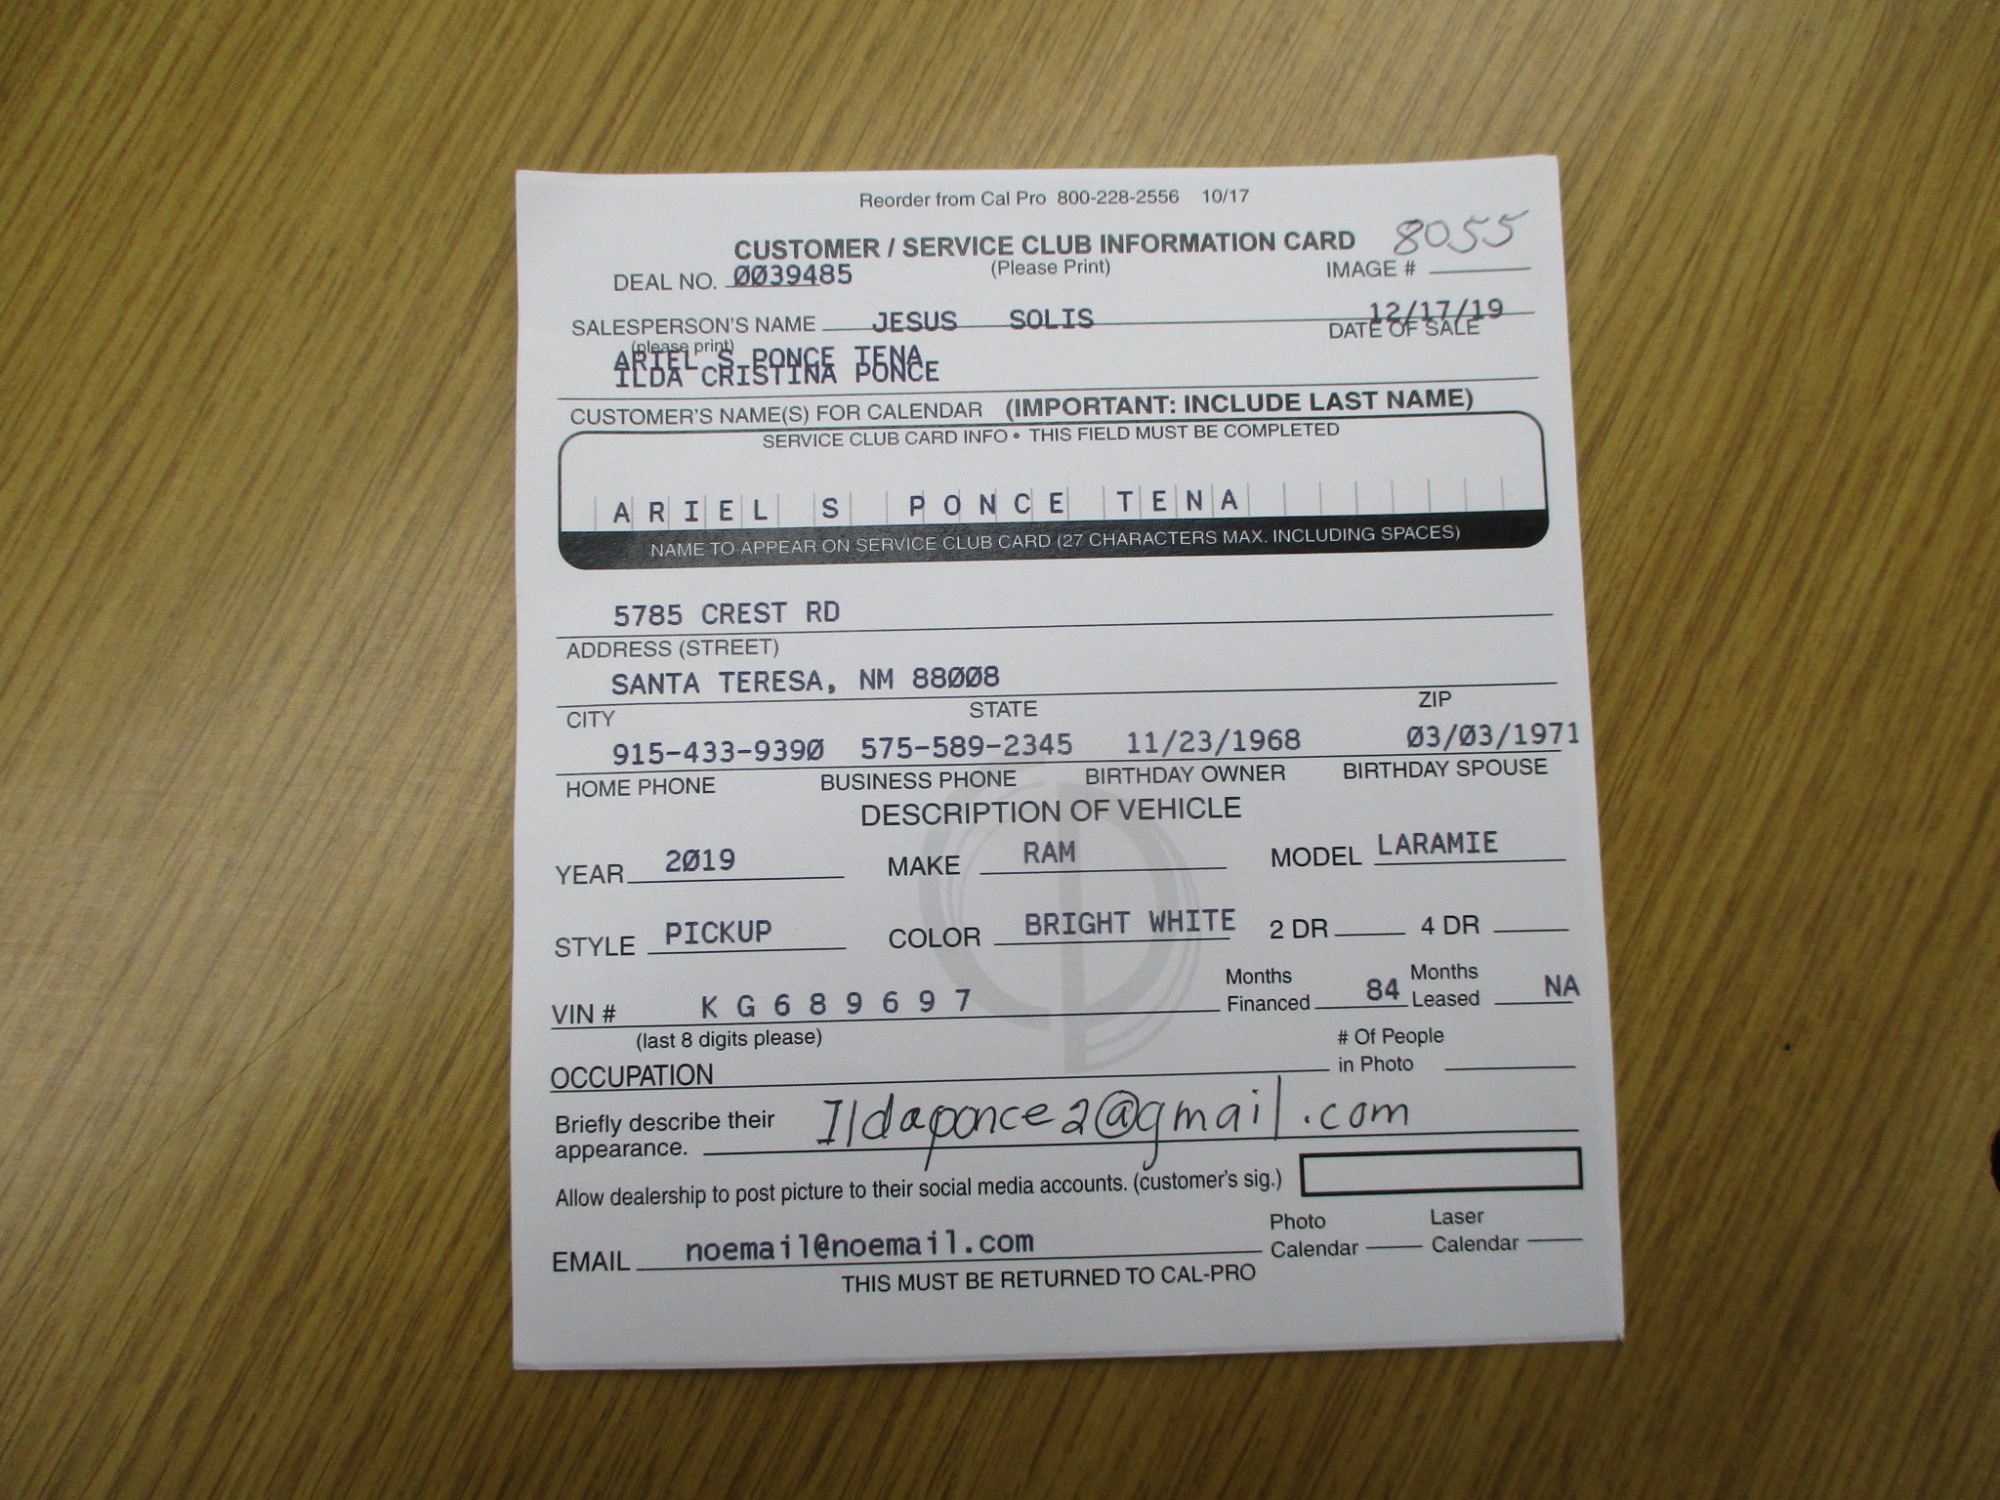 Reorder from Cal Pro 800-228-2556 10/17
CUSTOMER / SERVICE CLUB INFORMATION CARD 8055
DEAL NO. 0039485 (Please Print) IMAGE #
SALESPERSON'S NAME JESUS SOLIS 12/17/19
(please print) DATE OF SALE
ARIEL S PONCE TENA
ILDA CRISTINA PONCE
CUSTOMER'S NAME(S) FOR CALENDAR (IMPORTANT: INCLUDE LAST NAME)
SERVICE CLUB CARD INFO • THIS FIELD MUST BE COMPLETED
ARIEL S PONCE TENA
NAME TO APPEAR ON SERVICE CLUB CARD (27 CHARACTERS MAX. INCLUDING SPACES)
5785 CREST RD
ADDRESS (STREET)
SANTA TERESA, NM 88008
CITY STATE ZIP
915-433-9390 575-589-2345 11/23/1968 03/03/1971
HOME PHONE BUSINESS PHONE BIRTHDAY OWNER BIRTHDAY SPOUSE
DESCRIPTION OF VEHICLE
YEAR 2019 MAKE RAM MODEL LARAMIE
STYLE PICKUP COLOR BRIGHT WHITE 2 DR 4 DR
VIN # K G 6 8 9 6 9 7 Months Financed 84 Months Leased NA
(last 8 digits please)
OCCUPATION # Of People in Photo
Briefly describe their appearance. Ildaponce2@gmail.com
Allow dealership to post picture to their social media accounts. (customer's sig.)
EMAIL noemail@noemail.com Photo Calendar Laser Calendar
THIS MUST BE RETURNED TO CAL-PRO